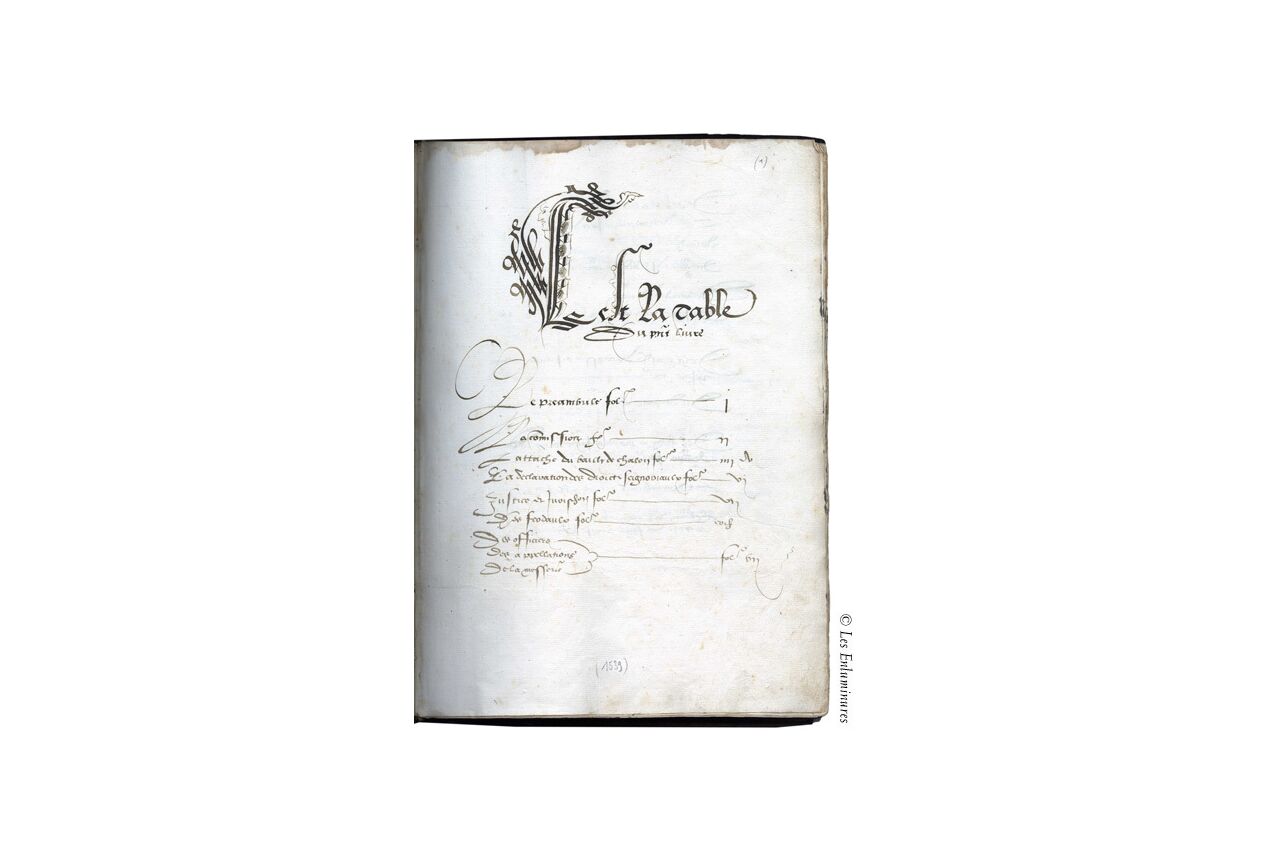 (1)
C'est La Table
Du pnt Livre
Le preambule fol. j
La comission fol. ii
L attache du bailly de chalon fol. iiii
La declaration des droictz seigneuriaulx fol. vi
Justice et fol. vii
Des feodaulx fol.
Des officiers
Des appellations fol. vii
De la messerie
(1539)
© Les Enluminures